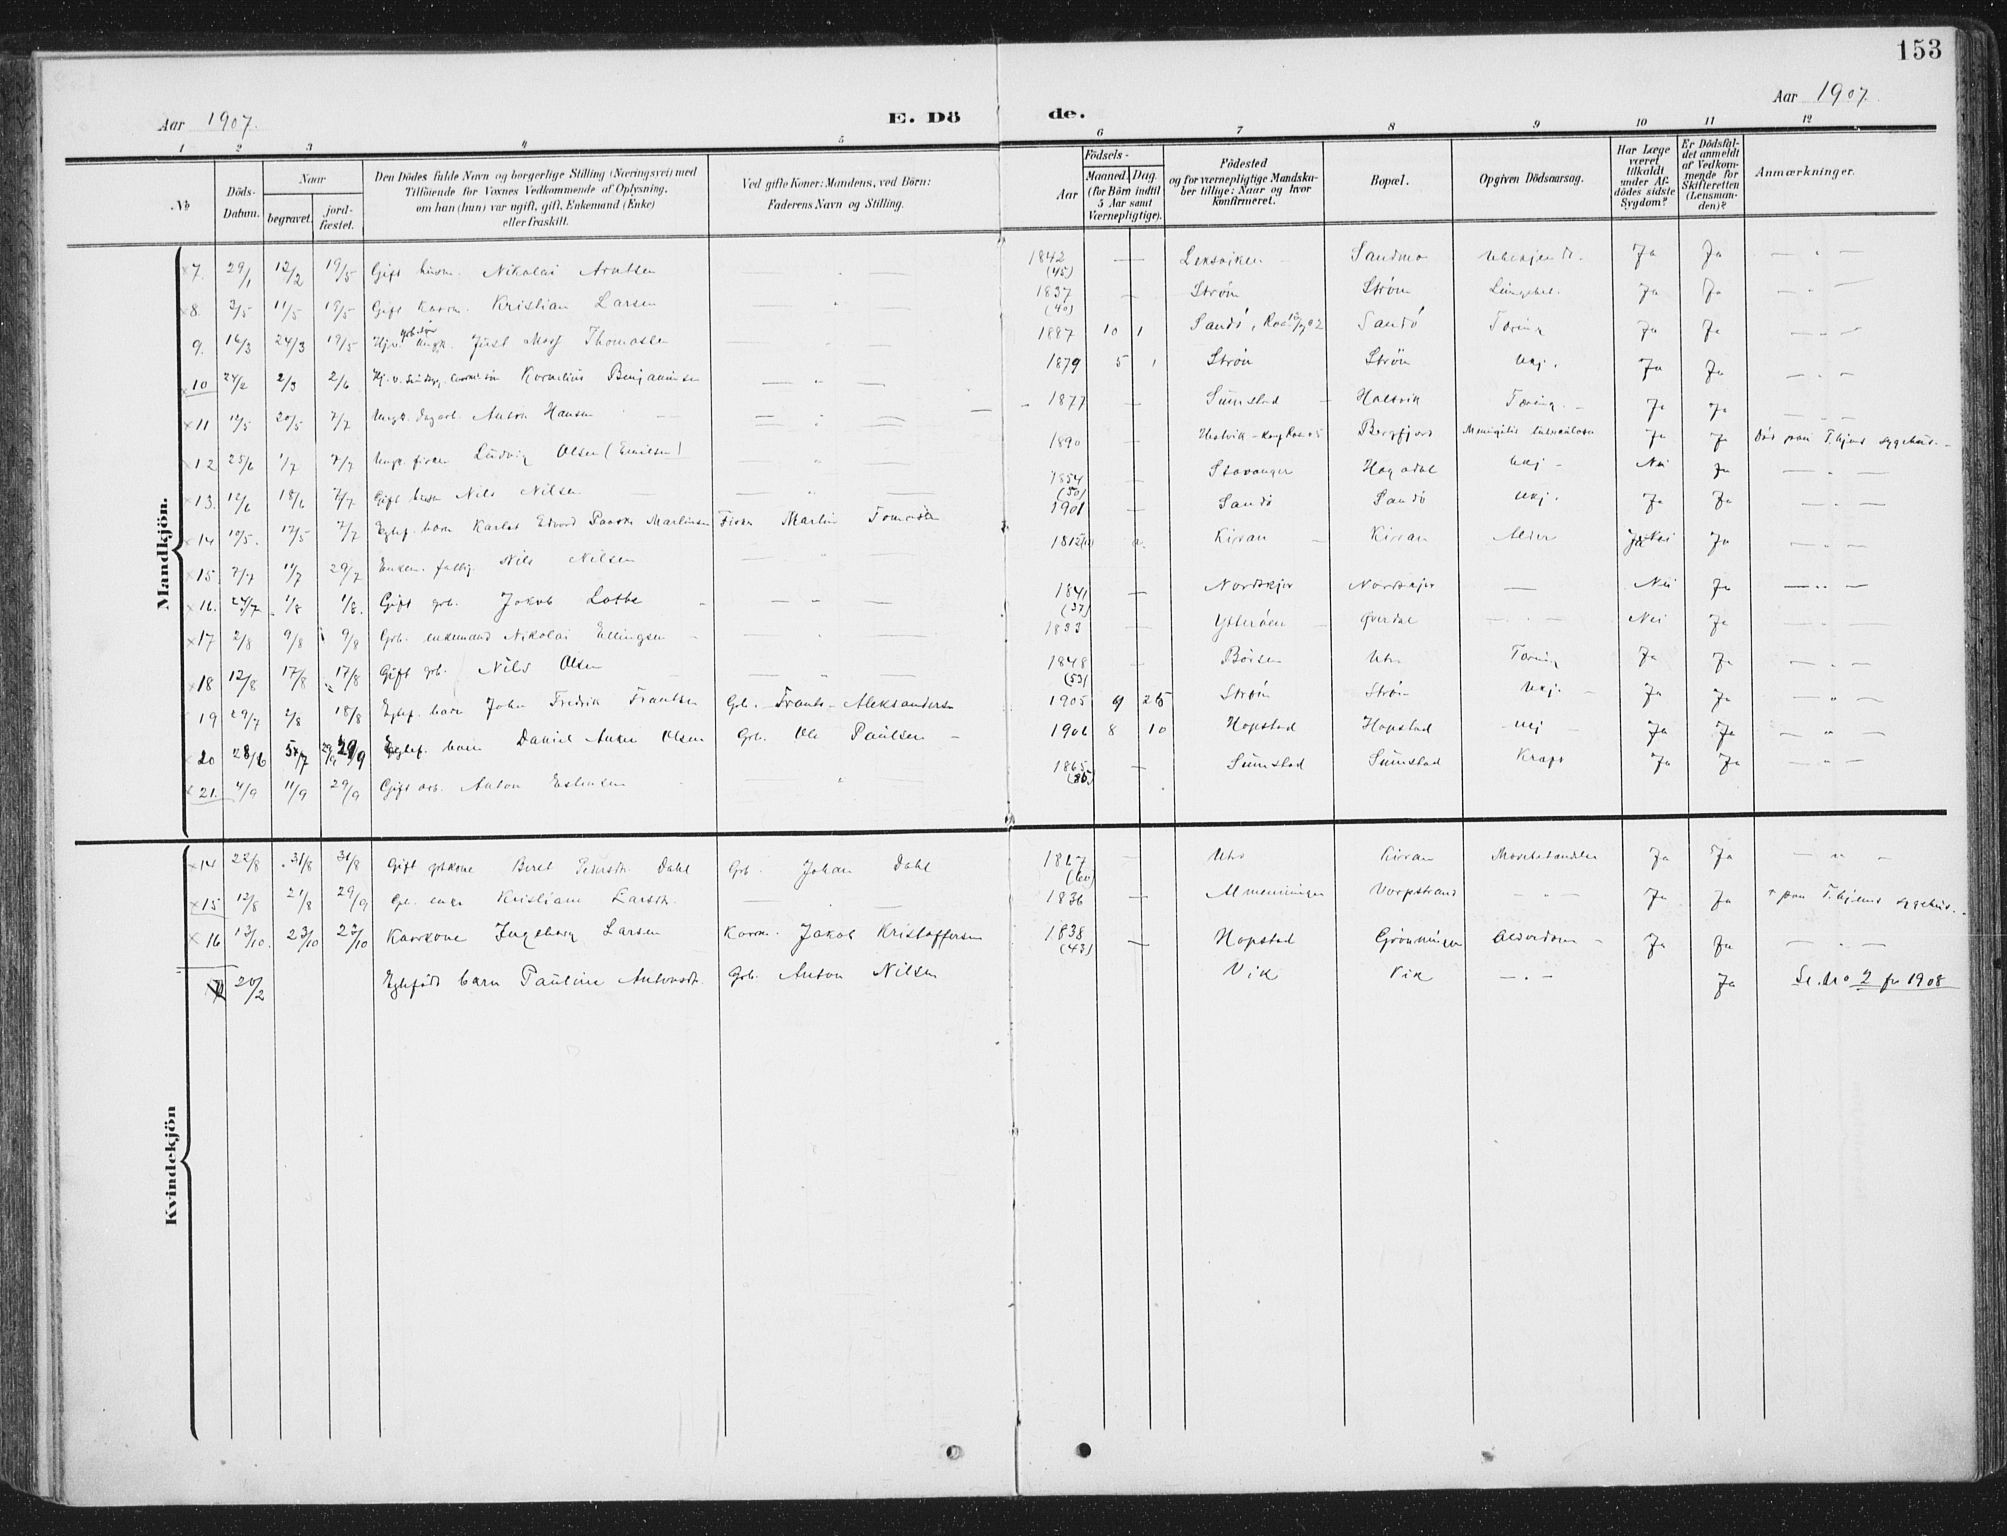 153
Aar 1907.
E. Dö
de.
Aar 1907.
1 2 3 4 5 6 7 8 9 10 11 12
No
Döds-Datum.
Naar
begravet.
jord-fæstet.
Den Dödes fulde Navn og borgerlige Stilling (Næringsvei) med
Tilföiende for Voxnes Vedkommende af Oplysning,
om han (hun) var ugift, gift, Enkemand (Enke)
eller fraskilt.
Ved gifte Koner: Mandens, ved Börn:
Faderens Navn og Stilling.
Födsels-
Aar
Maaned. Dag.
(for Börn indtil
5 Aar samt
Værnepligtige).
Födested
og for værnepligtige Mandska-
ber tillige: Naar og hvor
konfirmeret.
Bopæl.
Opgiven Dödsaarsag.
Har Læge
været
tilkaldt
under Af-
dödes sidste
Sygdom?
Er Dödsfal-
det anmeldt
af Vedkom-
mende for
Skifteretten
(Lensman-
den)?
Anmærkninger.
Mandkjön.
×7. 29/1 12/2 19/5 Gift husm. Nikolai Arntsen — " — 1842 (45) — Leksviken Sandmo Ubekjendt. Ja Ja — " —
×8. 3/5 11/5 19/5 Gift Kaarm. Kristian Larsen — " — 1837 (40) — Strøm Strøm Lungebet. Ja Ja — " —
9. 16/3 24/3 19/5 Ungk. Just Thomassen 1887 10 1 Sandø, Sandø Tæring Ja Ja — " —
×10 24/2 2/3 2/6 Kornelius Benjaminsen — " — 1879 5 1 Strøm Strøm Ukj. Ja Ja — " —
×11 12/5 20/5 7/7 Ungk. dagarb. Anton Hansen — " — 1877 — Sumstad Holsvik Tæring. Ja Ja — " —
×12 25/6 1/7 7/7 Ungk. fisker Ludvig Olsen (Emilsen) — " — 1890 — Bergfjord Meningitis tuberculosa Ja Ja Död paa T.hjems sygehus.
×13. 12/6 18/6 7/7 Gift husm. Nils Nilsen — " — 1854 (50) — Stavanger Hagadal Ukj. Nei Ja — " —
×14 10/5. 17/5 7/7 Egtef. barn Karlot Edvard Martinsen Fisker Martin Tomassen 1901 — Sandø Sandø Ukj. Ja Ja — " —
×15 7/7 11/7 29/7 Enkem. fattig. Nils Nilsen — " — 1812 Kirran Kirran Alder Nei Ja — " —
×16. 24/7 1/8 1/8. Gift grb. Jakob Lothe — " — 1841 (37) — Nordskjør Nordskjør — Nei Ja — " —
×17 2/8 9/8 9/8 Grb. enkemand Nikolai Ellingsen — " — 1833 — Ytterøen Qverdal — " — Nei Ja — " —
×18 12/8 17/8 17/8 Gift grb. Nils Olsen — " — 1848 (53) — Børsen Utro Tæring Ja Ja — " —
19 29/7 2/8 18/8 Egtef. barn John Fredrik Frantsen Grb. Frants Aleksandersen 1905 9 25 Strøm Strøm Ukj. Ja Ja — " —
×20 28/6 5/7 29/9 Egtef. barn Daniel Olsen Grb. Ole Paulsen 1906 8 10 Hopstad Hopstad Ukj — Ja Ja — " —
×21. 4/9 11/9 29/9 Gift arb. Anton Estensen — " — 1865 — Sumstad Sumstad Kræft Ja Ja — " —
Kvindekjön
×14 22/8 31/8 31/8 Gift grbkone Beret Dahl Grb. Johan Dahl 1827 (60) — Utro Kirran Ja Ja — " —
×15 12/8 21/8 29/9 Grb. enke Kristiane Larsdtr. — " — 1836 — Almenningen Vorpstrand — " — Ja Ja † paa T.hjems sygehus.
×16 13/10. 23/10 23/10 Kaarkone Ingeborg Larsen Kaarm. Jakob Kristoffersen 1838 (43) — Hopstad Grønningen Alderdom Ja Ja — " —
20/2 Egtefødt barn Pauline Antonsdtr. Grb. Anton Nilsen Vik Vik — " — Ja Se No 2 for 1908